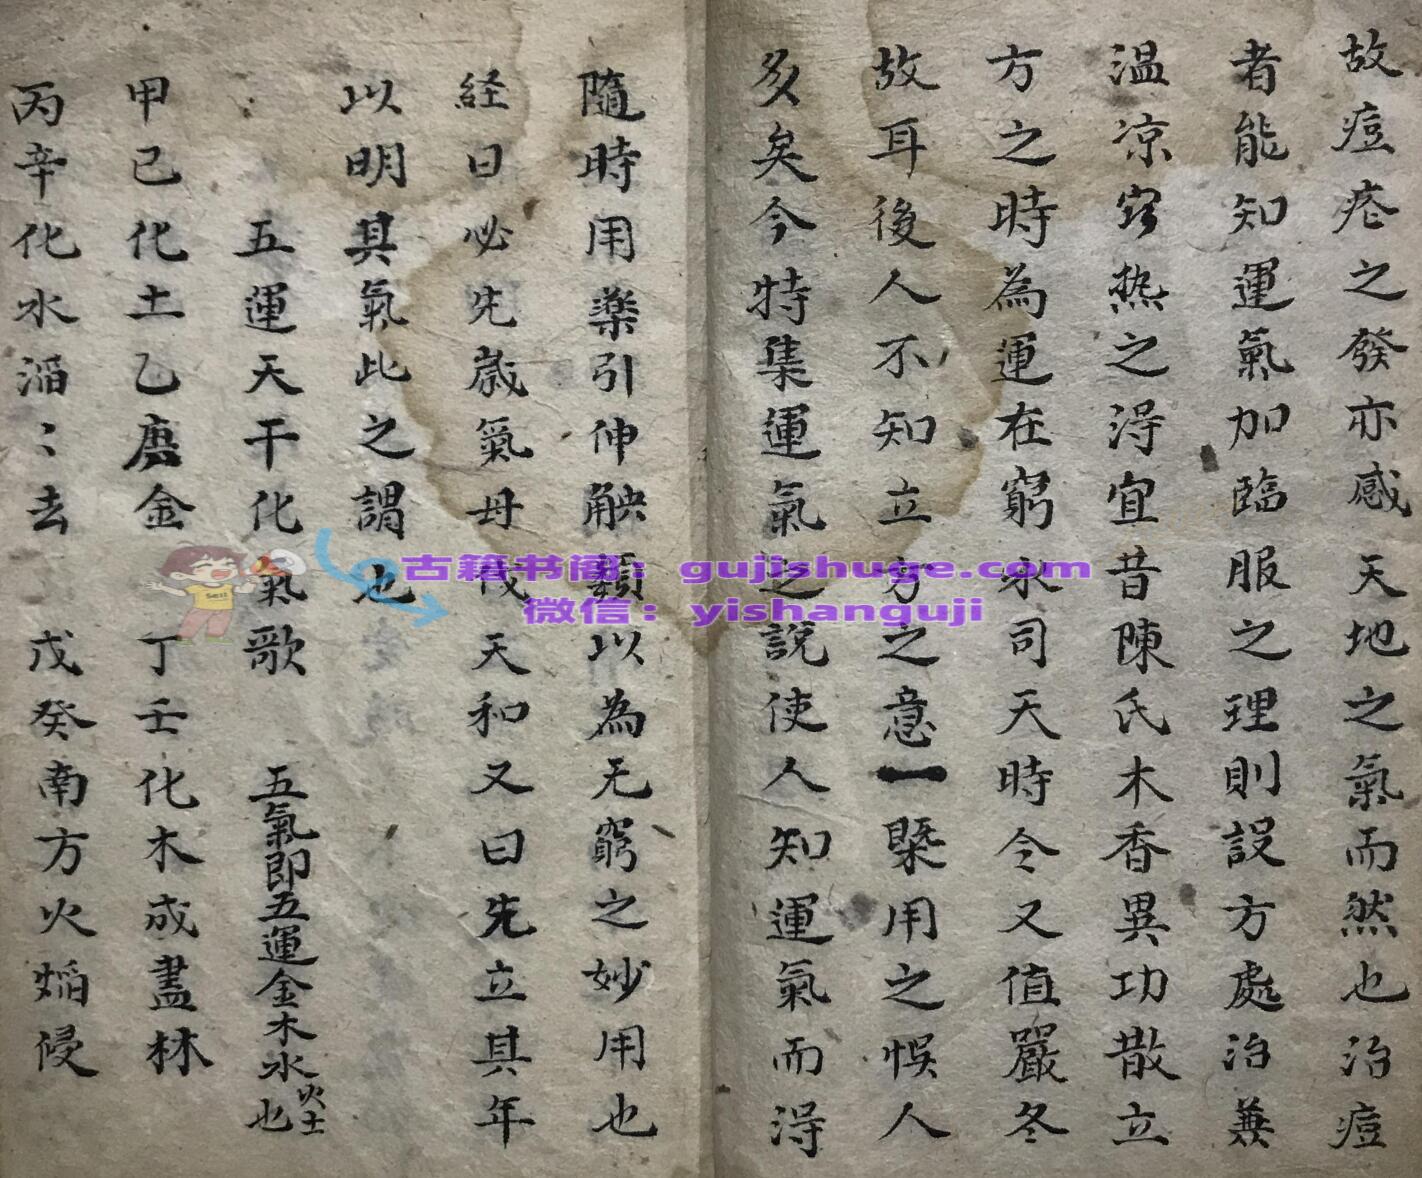 故痘疹之發亦感天地之氣而然也治痘
者能知運氣加臨服之理則設方處治兼
溫凉窮热之得宜昔陳氏木香異功散立
方之時為運在窮水司天時令又值嚴冬
故耳後人不知立方之意一槩用之悞人
多矣今特集運氣之說使人知運氣而得
隨時用藥引伸觸類以為无窮之妙用也
経曰必先歲氣毋伐天和又曰先立其年
以明其氣此之謂也
五運天干化氣歌 五氣即五運金木水火土也
甲己化土乙庚金 丁壬化木成盡林
丙辛化水滔〻去 戊癸南方火焰侵
古籍书阁：gujishuge.com
微信：yishanguji